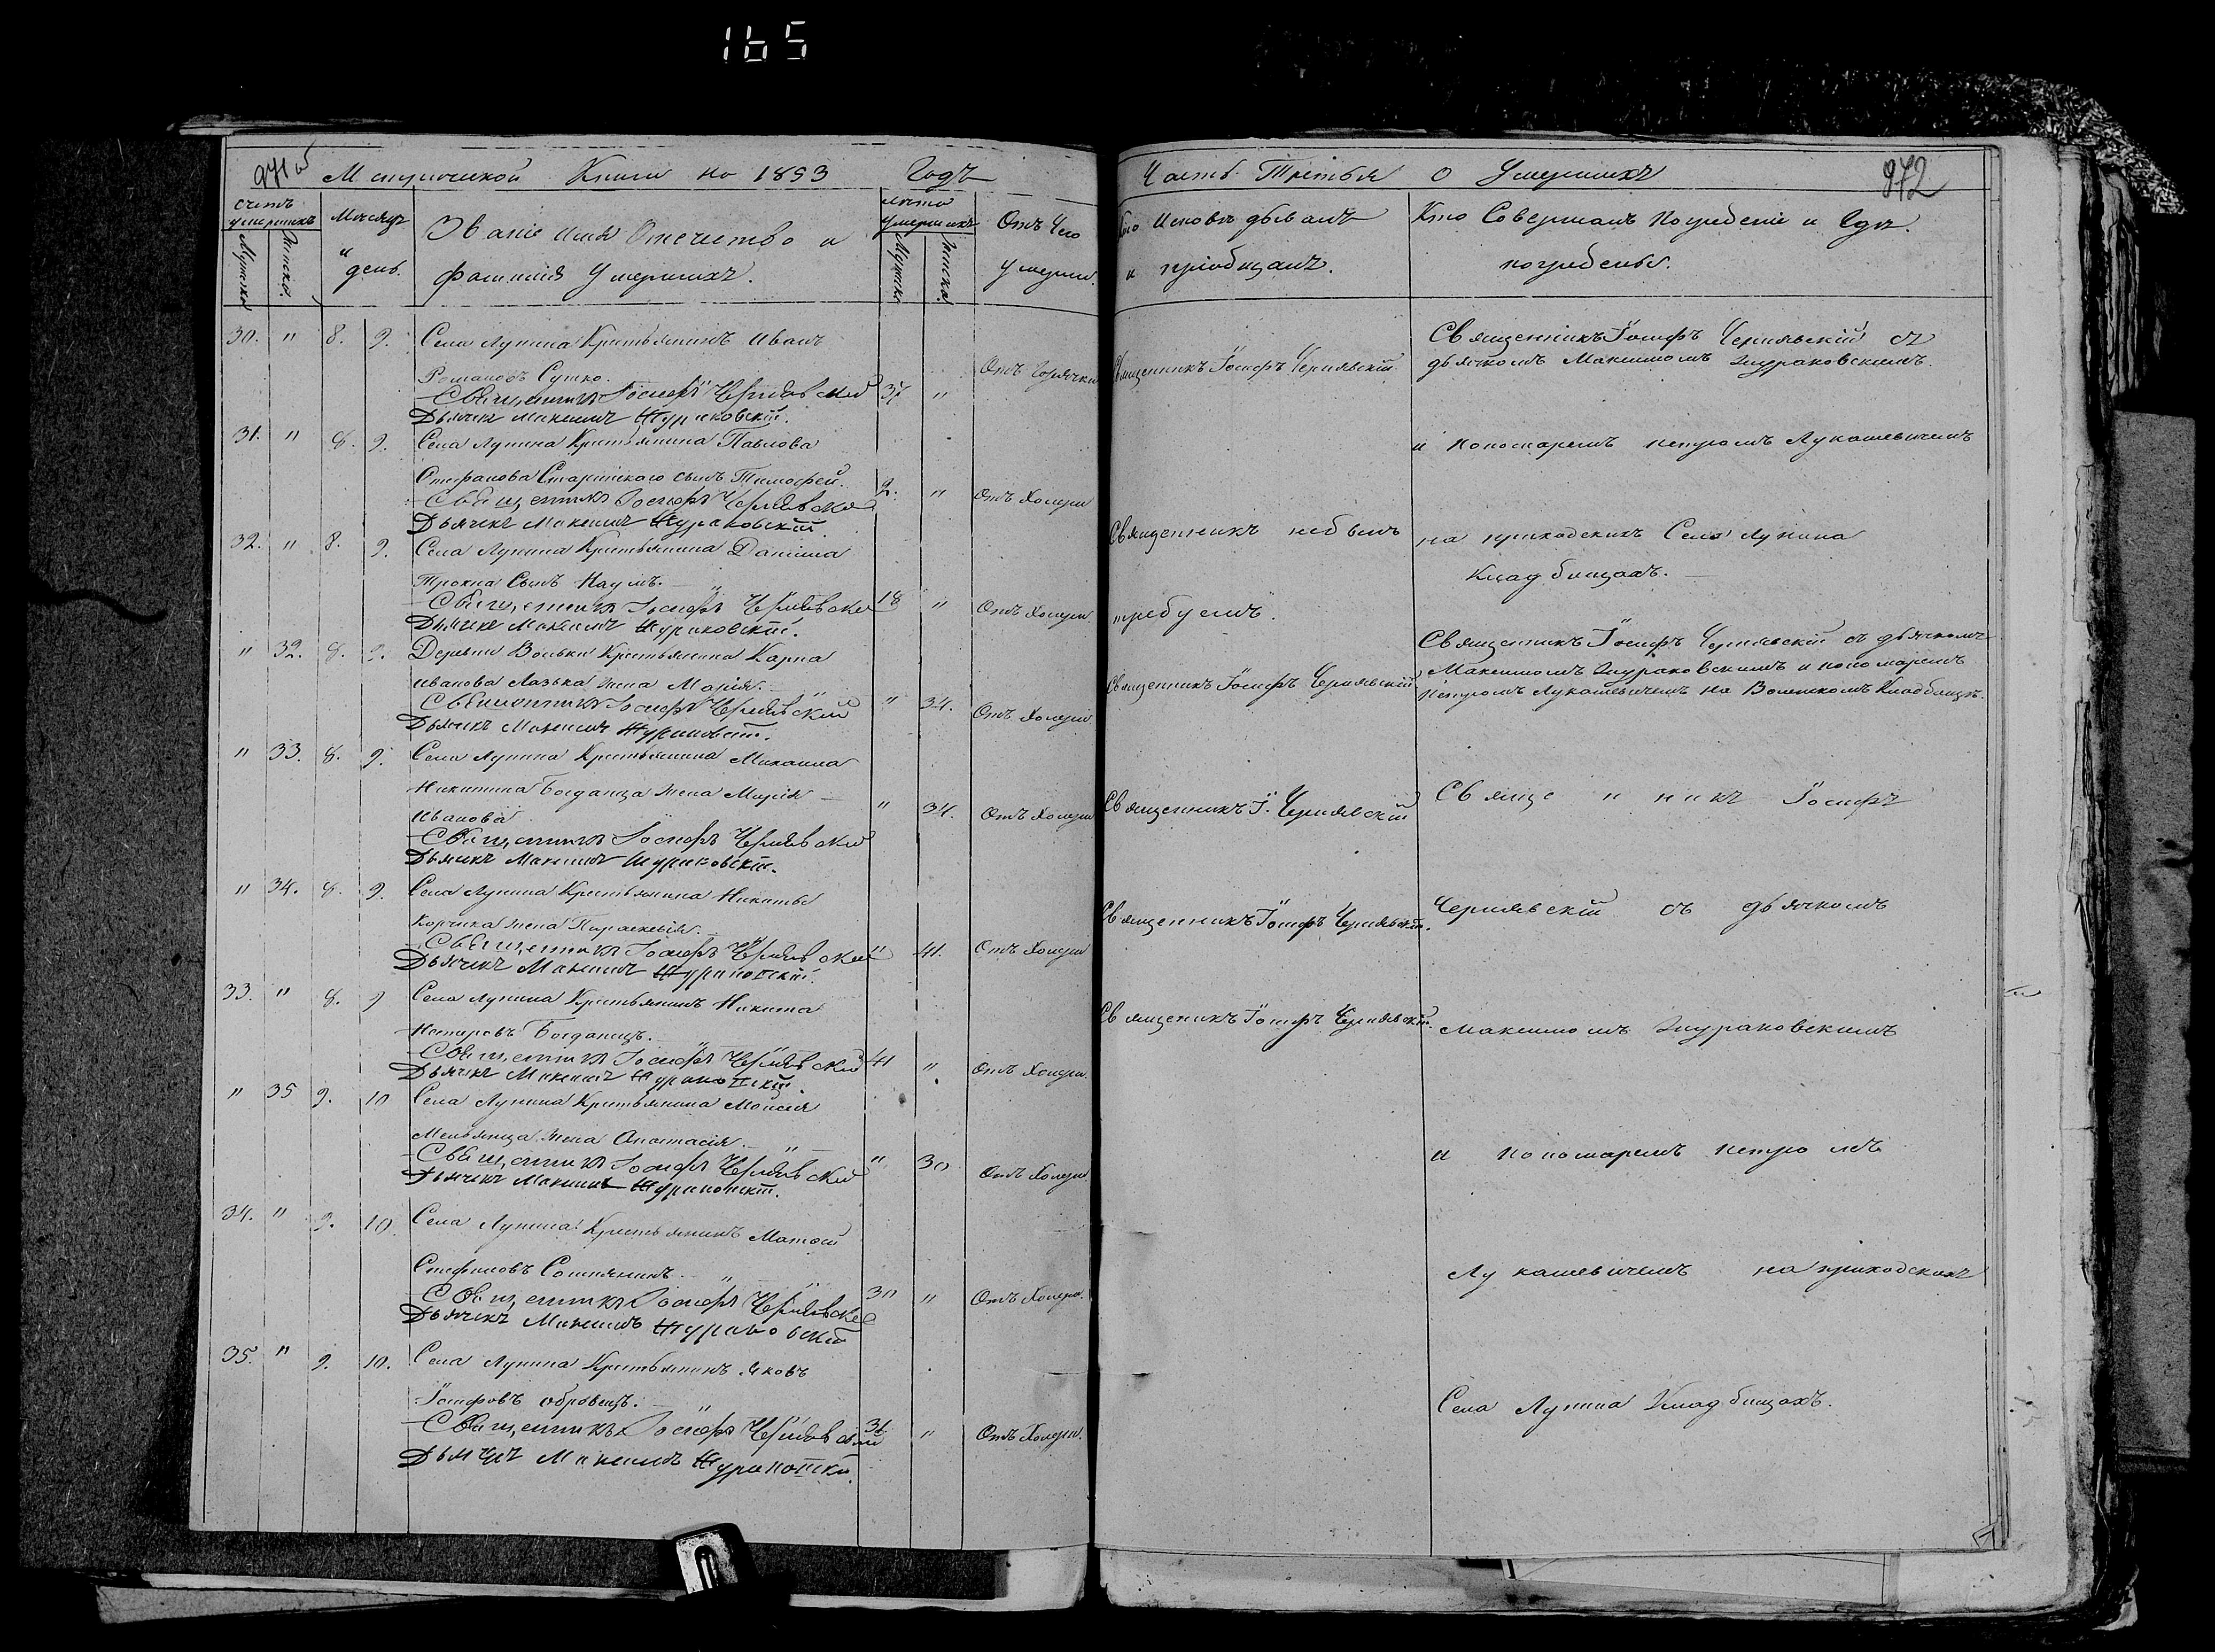 165
971 об
Метрической Книги на 1853 Годъ
счетъ умершихъ
Мужска
Женска
Мѣсяцъ и день.
Званіе имя Отечество и
фамилія Умершихъ.
лѣта умершихъ
Мужска
Женска
Отъ Чего
умерли.
30. " 8. 9. Села Лунина Крестьянинъ Иванъ
Романовъ Супко. 37 " Отъ Горячки
Священникъ Іосифъ Чернявскій
Дьячекъ Максимъ Жураковскій.
31. " 8. 9. Села Лунина Крестьянина Павлова
Стефанова Старинскаго сынъ Тимофей. 2. " Отъ Холеры
Священникъ Іосифъ Чернявскій
Дьячекъ Максимъ Жураковскій.
32. " 8. 9. Села Лунина Крестьянина Даніила
Сынъ Наумъ. 18 " Отъ Холеры
Священникъ Іосифъ Чернявскій
Дьячекъ Максимъ Жураковскій.
" 32. 8. 9. Деревни Вольки Крестьянина Карпа
Иванова Лазька жена Марія. " 34. Отъ Холеры
Священникъ Іосифъ Чернявскій
Дьячекъ Максимъ Жураковскій.
" 33. 8. 9. Села Лунина Крестьянина Михаила
Никитина Богданца жена Марія
Иванова " 34. Отъ Холеры
Священникъ Іосифъ Чернявскій
Дьячекъ Максимъ Жураковскій.
" 34. 8. 9. Села Лунина Крестьянина Никиты
Корчика жена Параскевія. " 41. Отъ Холеры
Священникъ Іосифъ Чернявскій
Дьячекъ Максимъ Жураковскій.
33. " 8. 9 Села Лунина Крестьянинъ Никита
Нестеровъ Богданецъ. 41 " Отъ Холеры.
Священникъ Іосифъ Чернявскій
Дьячекъ Максимъ Жураковскій.
" 35 9. 10 Села Лунина Крестьянина Моисея
жена Анастасія. " 30 Отъ Холеры
Священникъ Іосифъ Чернявскій
Дьячекъ Максимъ Жураковскій.
34. " 9. 10. Села Лунина Крестьянинъ Матфей
Стефановъ 30 " Отъ Холеры.
Священникъ Іосифъ Чернявскій
Дьячекъ Максимъ Жураковскій
35. " 9. 10. Села Лунина Крестьянинъ Яковъ
Іосифовъ 31. " Отъ Холеры.
Священникъ Іосифъ Чернявскій
Дьячекъ Максимъ Жураковскій
Часть Третья о Умершихъ
972
Кто Исповѣдывалъ
и пріобщалъ.
Кто Совершалъ Погребеніе и Гдѣ
погребены.
Священникъ Іосифъ Чернявскій
Священникъ небылъ
требуемъ.
Священникъ Іосифъ Чернявскій
Священникъ І. Чернявскій
Священникъ Іосифъ Чернявскій.
Священикъ Іосифъ Чернявскій.
Священникъ Іосифъ Чернявскій съ
дьячкомъ Максимомъ Жураковскимъ
и Пономаремъ Петромъ Лукашевичемъ
на приходскихъ Села Лунина
Кладбищахъ.
Священникъ Іосифъ Чернявскій съ дьячкомъ
Максимомъ Жураковскимъ и пономаремъ
Петромъ Лукашевичемъ на Волькомъ Кладбищѣ.
Священникъ Іосифъ
Чернявскій съ дьячкомъ
Максимомъ Жураковскимъ
и пономаремъ Петромъ
Лукашевичемъ на приходскихъ
Села Лунина Кладбищахъ.